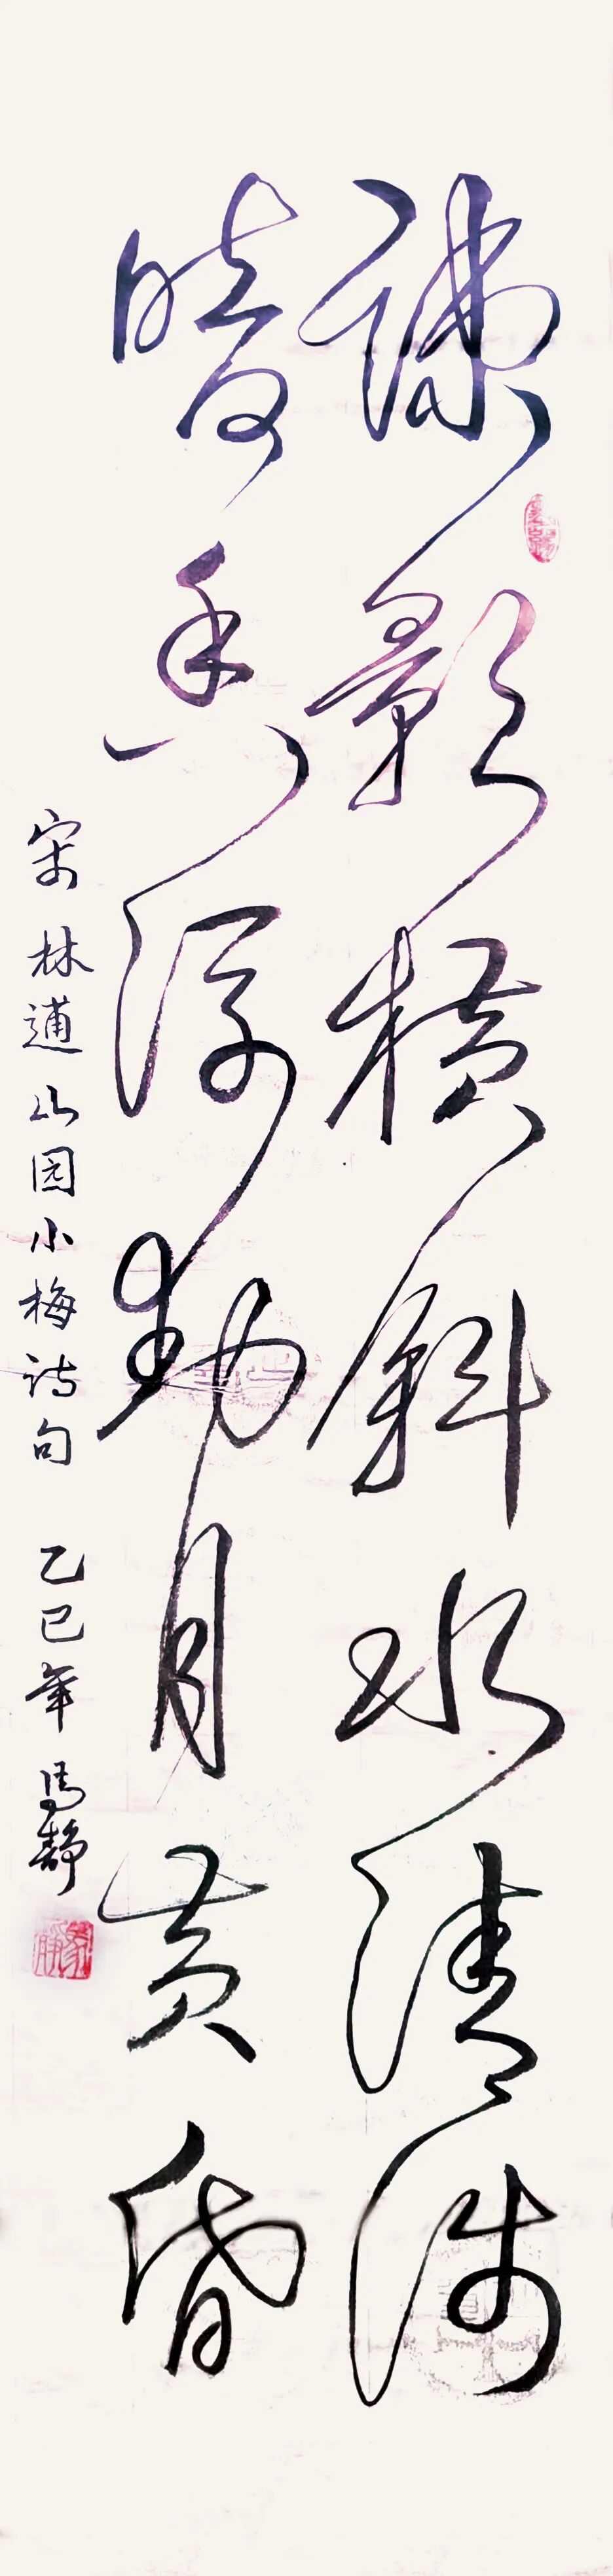 疎影横斜水清浅
暗香浮动月黄昏
宋林逋山园小梅诗句 乙巳年 马静